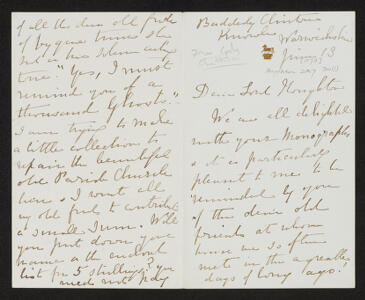 Baddesley Clinton
Knowle
Warwickshire
Dear Lord Houghton
We are all delighted
with your Monographs
& it is particularly
pleasant to me to be
reminded by you
of the dear old
friends at whose
house we so often
met in the agreeable
days of long ago!
of all the dear old
of bygone times she
in her solemn
tone. "Yes, I must
remind you of a
thousand Ghosts."
I am trying to make
a little collection to
repair the beautiful
old Parish Church
here & I want all
my old to contribute
a small sum. Will
you put down your
name on the enclosed
list for 5 shillings? you
need not pay